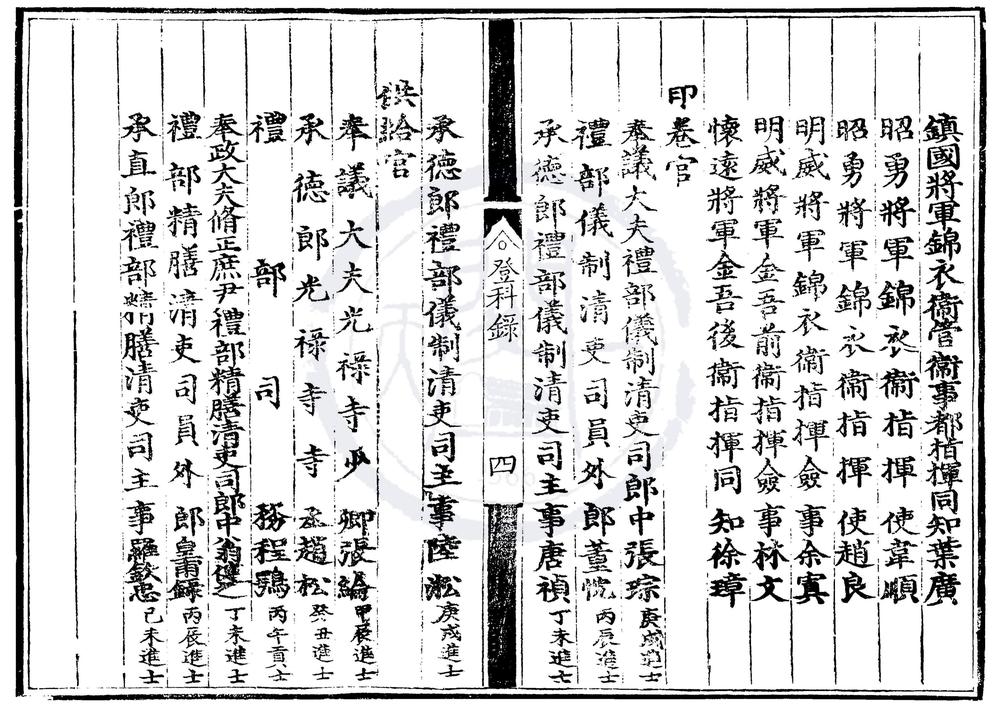 鎮國將軍錦衣衞管衞事都指揮同知葉廣
昭勇將軍錦衣衞指揮使韋順
昭勇將軍錦衣衞指揮使趙良
明威將軍錦衣衞指揮僉事余寘
明威將軍金吾前衞指揮僉事林文
懷遠將軍金吾後衞指揮同知徐璋
印卷官
奉議大夫禮部儀制清吏司郎中張琮庚戌進士
禮部儀制清吏司員外郎董忱丙辰進士
承德郎禮部儀制清吏司主事唐禎丁未進士
登科錄
四
承德郎禮部儀制清吏司主事陸淞庚戌進士
供給官
奉議大夫光祿寺少卿張綸甲辰進士
承德郎光祿寺寺丞趙松癸丑進士
禮部司務程鶚丙午貢士
奉政大夫脩正庶尹禮部精膳清吏司郎中丁未進士
禮部精膳清吏司員外郎皇甫錄丙辰進士
承直郎禮部精膳清吏司主事羅欽忠己未進士